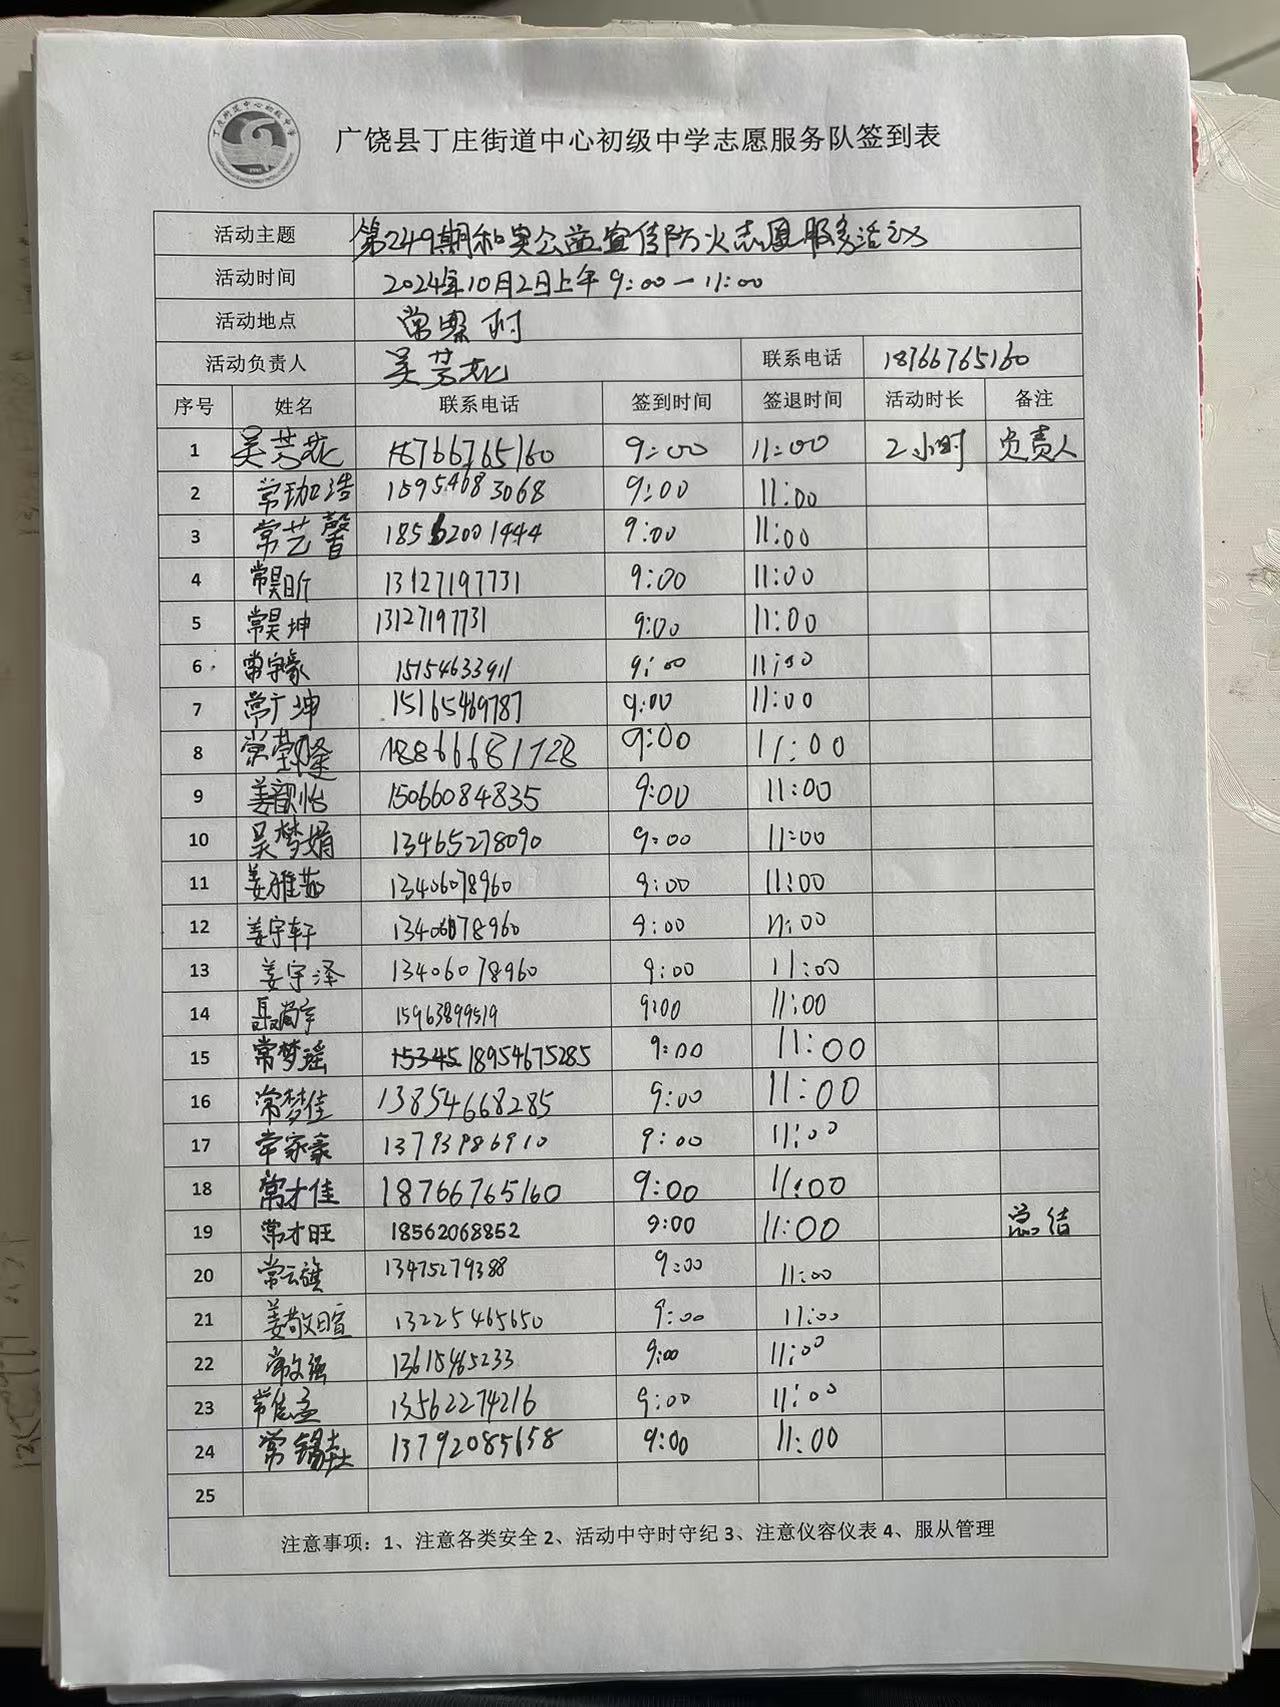 丁庄街道中心初级中学
广饶县丁庄街道中心初级中学志愿服务队签到表
活动主题 第249期和奥公益宣传防火志愿服务活动
活动时间 2024年10月2日上午9:00—11:00
活动地点 常寨村
活动负责人 吴芳花 联系电话 18766765160
序号 姓名 联系电话 签到时间 签退时间 活动时长 备注
1 吴芳花 18766765160 9:00 11:00 2小时 负责人
2 常珈浩 15954683068 9:00 11:00
3 常艺馨 18562001444 9:00 11:00
4 常昊昕 13127197731 9:00 11:00
5 常昊坤 13127197731 9:00 11:00
6 常宇豪 15154633911 9:00 11:00
7 常广坤 15165469787 9:00 11:00
8 18866681728 9:00 11:00
9 姜歆怡 15066084835 9:00 11:00
10 吴梦娟 13465278090 9:00 11:00
11 姜雅茹 13406078960 9:00 11:00
12 姜宇轩 13406078960 9:00 11:00
13 姜宇泽 13406078960 9:00 11:00
14 15963899519 9:00 11:00
15 常梦瑶 15345 18954675285 9:00 11:00
16 常梦佳 13854668285 9:00 11:00
17 常家豪 13793986910 9:00 11:00
18 常才佳 18766765160 9:00 11:00
19 常才旺 18562068852 9:00 11:00 总结
20 常云旗 13475279388 9:00 11:00
21 姜敬暄 13225465650 9:00 11:00
22 常文强 13615465233 9:00 11:00
23 常佳孟 13562274216 9:00 11:00
24 13792085658 9:00 11:00
25
注意事项：1、注意各类安全 2、活动中守时守纪 3、注意仪容仪表 4、服从管理